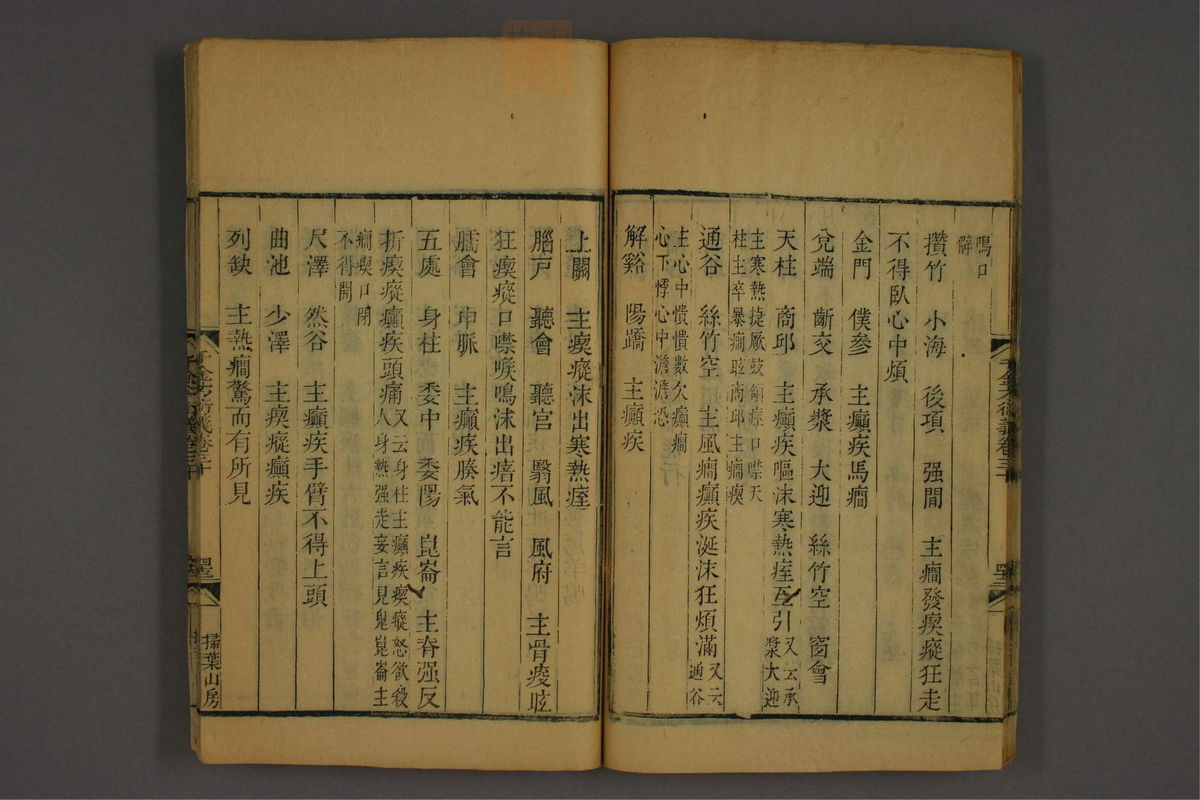 鳴口
僻
攢竹　小海　後項　强間　主癇發瘈瘲狂走
不得臥心中煩
金門　僕參　主癲疾馬癇
兊端　齗交　承漿　大迎　絲竹空　窗會
天柱　商邱　主癲疾嘔沫寒熱痓互引又云承漿大迎
主寒熱捷厥鼓頷痓口噤天
柱主卒暴癇眩商邱主癇瘈
通谷　絲竹空　主風癇癲疾涎沫狂煩滿又云通谷
主心中憒憒數欠癲癇
心下悸心中澹澹恐
解谿　陽蹻　主癲疾
上關　主瘈瘲沫出寒熱痓
腦戶　聽會　聽宫　翳風　風府　主骨痠眩
狂瘈瘲口噤喉鳴沫出瘖不能言
臑會　申脈　主癲疾腠氣
五處　身柱　委中　委陽　崑崙　主脊强反
折瘈瘲癲疾頭痛又云身柱主癲疾瘈瘲怒欲殺人身熱强走妄言見鬼崑崙主
癇瘈口閉
不得開
尺澤　然谷　主癲疾手臂不得上頭
曲池　少澤　主瘈瘲癲疾
列缺　主熱癇驚而有所見
掃葉山房